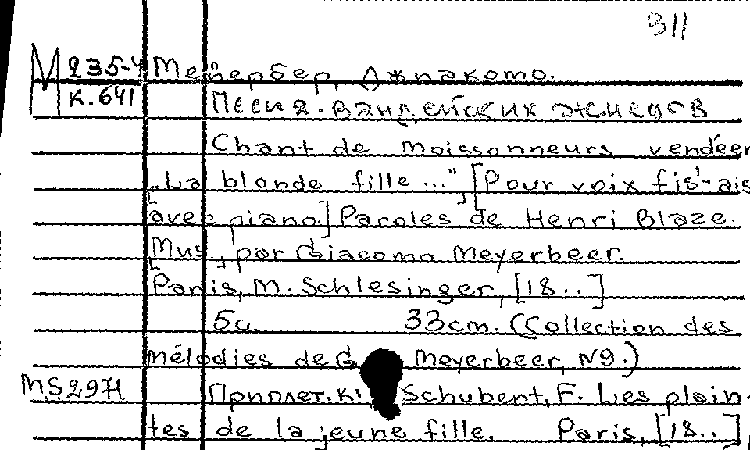 311
М 235-4 Мейербер, Джакомо.
К.641 Песня вандейских жнецов
Chant de moissonneurs vendéen
„La blonde fille ...", [Pour voix fis-ais
avec piano] Paroles de Henri Blaze.
Mus. par Giacomo Meyerbeer.
Paris, M. Schlesinger, [18..]
5с. 33cm. (Collection des
mélodies de G. Meyerbeer, N9.)
MS2971 Приплет. к: Schubert, F. Les plain-
tes de la jeune fille. Paris, [18..],